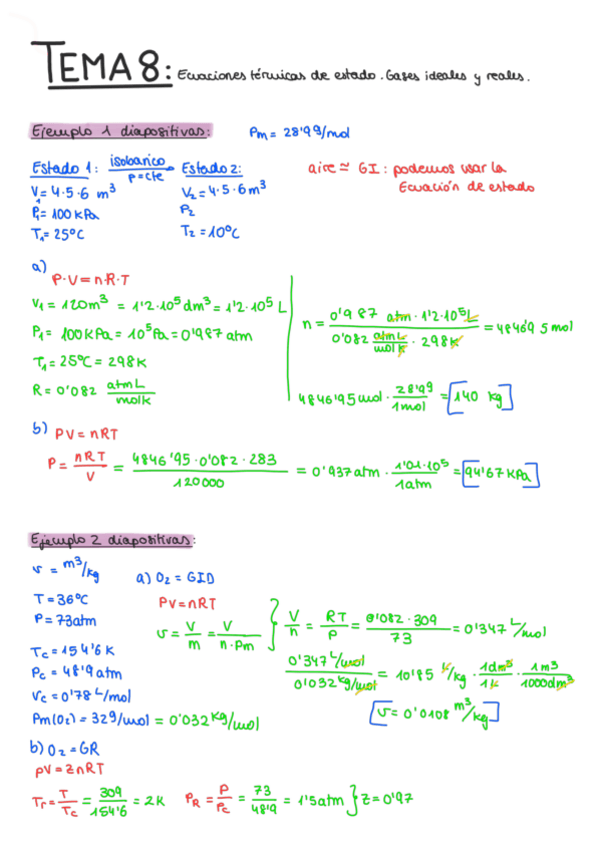 TEMA 8: Ecuaciones térmicas de estado. Gases ideales y reales.
Ejemplo 1 diapositivas: Pm = 28'9 g/mol
Estado 1: isobarico p=cte Estado 2:
V₁=4·5·6 m³ V₂=4·5·6 m³
P₁=100 kPa P₂
T₁=25ºC T₂=10ºC
aire ≃ GI: podemos usar la
Ecuación de estado
a)
P·V=n·R·T
V₁ = 120m³ = 1'2·10⁵dm³=1'2·10⁵ L
P₁= 100KPa=10⁵Pa=0'987 atm
T₁=25ºC = 298K
R = 0'082 atm L / mol K
n = 0'987 atm · 1'2·10⁵ L / 0'082 atm L / mol K · 298K = 4846'95 mol
4846'95 mol · 28'9g / 1mol = [140 kg]
b) PV=nRT
P = nRT / V = 4846'95·0'082·283 / 120000 = 0'937atm · 1'01·10⁵ / 1atm = [94'67 KPa]
Ejemplo 2 diapositivas:
v = m³/kg
T = 36ºC
P = 73atm
Tc = 154'6 K
Pc = 48'9 atm
Vc = 0'78 L/mol
Pm(O₂) = 32g/mol = 0'032 kg/mol
a) O₂ = GID
PV=nRT
v = V / m = V / n·Pm } V / n = RT / P = 0'082·309 / 73 = 0'347 L/mol
0'347 L/mol / 0'032 kg/mol = 10'85 L/kg · 1dm³ / 1L · 1m³ / 1000dm³
[v= 0'0108 m³/kg]
b) O₂ = GR
pV = znRT
Tr = T / Tc = 309 / 154'6 = 2K PR = P / Pc = 73 / 48'9 = 1'5atm } z=0'97